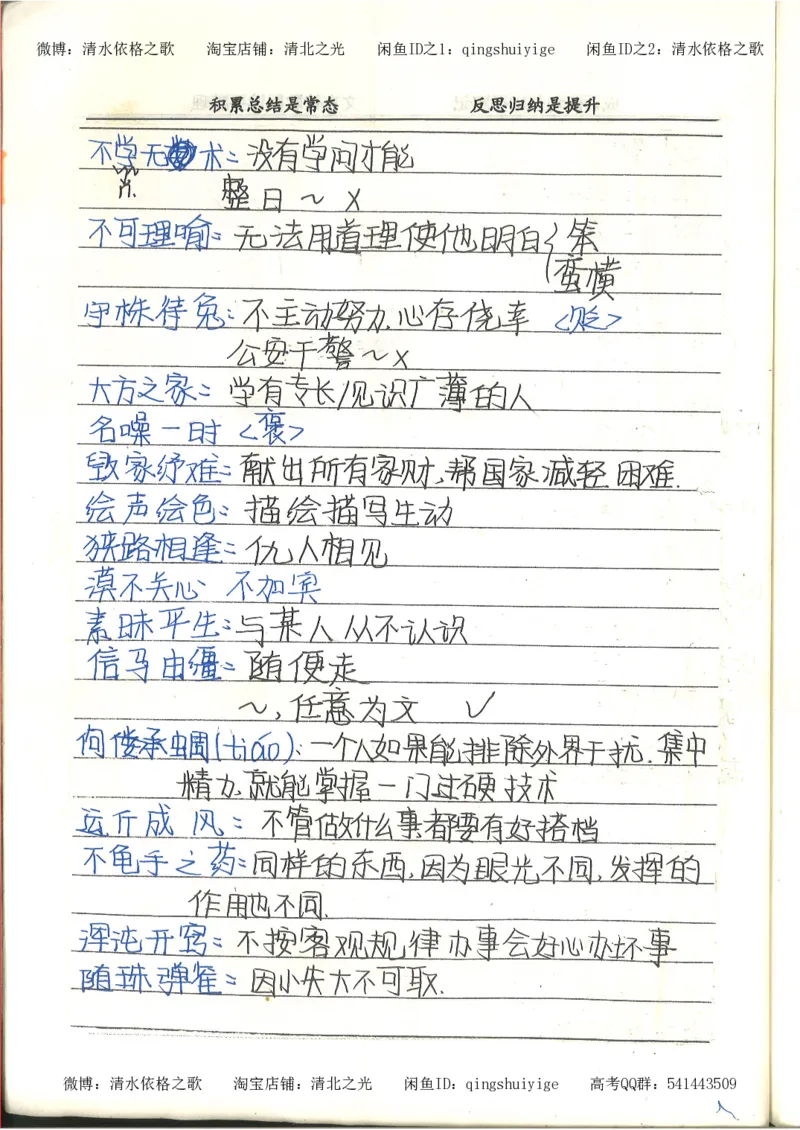 微博：清水依格之歌 淘宝店铺：清北之光 闲鱼ID之1：qingshuiyige 闲鱼ID之2：清水依格之歌
积累总结是常态 反思归纳是提升
不学无术：没有学问才能
整日～ ×
不可理喻：无法用道理使他明白{笨
蛮横
守株待兔：不主动努力，心存侥幸 <贬>
公安干警～×
大方之家：学有专长/见识广薄的人
名噪一时 <褒>
毁家纾难：献出所有家财，帮国家减轻困难.
绘声绘色：描绘描写生动
狭路相逢：仇人相见
漠不关心 不加宾
素昧平生：与某人从不认识
信马由缰：随便走
～，任意为文 ✓
佝偻承蜩(tiáo)：一个人如果能排除外界干扰.集中
精力,就能掌握一门过硬技术
运斤成风：不管做什么事都要有好搭档
不龟手之药：同样的东西,因为眼光不同,发挥的
作用也不同.
浑沌开窍：不按客观规律办事会好心办坏事
随珠弹雀：因小失大不可取.
微博：清水依格之歌 淘宝店铺：清北之光 闲鱼ID：qingshuiyige 高考QQ群：541443509